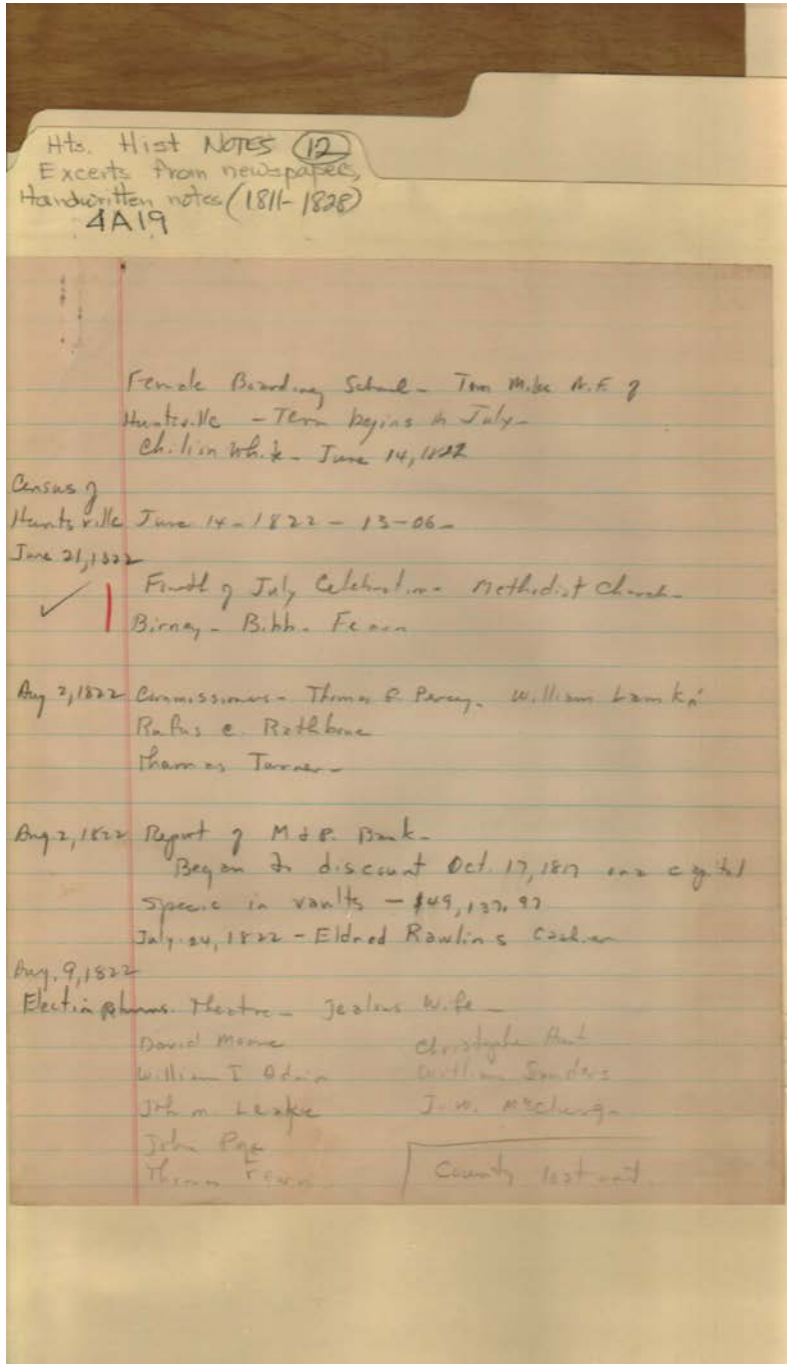 Hts. Hist NOTES 12
Excerts from newspapers,
Handwritten notes (1811-1828)
4A19
Female Boarding School - Ten Miles N.E. of
Huntsville - Term begins in July -
June 14, 1822
Census of
Huntsville June 14 - 1822 - 13-06 -
June 21, 1822
Fourth of July Celebration - Methodist Church -
Birney - Bibb - Fearn
Aug 2, 1822 Commissioners - Thomas Percy - William
Rufus C. Rathbone
Thomas Turner -
Aug. 2, 1822 Report of M & P. Bank -
Began to discount Oct. 17, 1817 on a capital
specie in vaults - $49,137.97
July 24, 1822 - Eldred Rawlins Cashier
Aug. 9, 1822
Election Theatre - Jealous Wife -
David Moore
William I Adair William Sanders
Leake J. W. McClung -
John
Thomas Fearn County